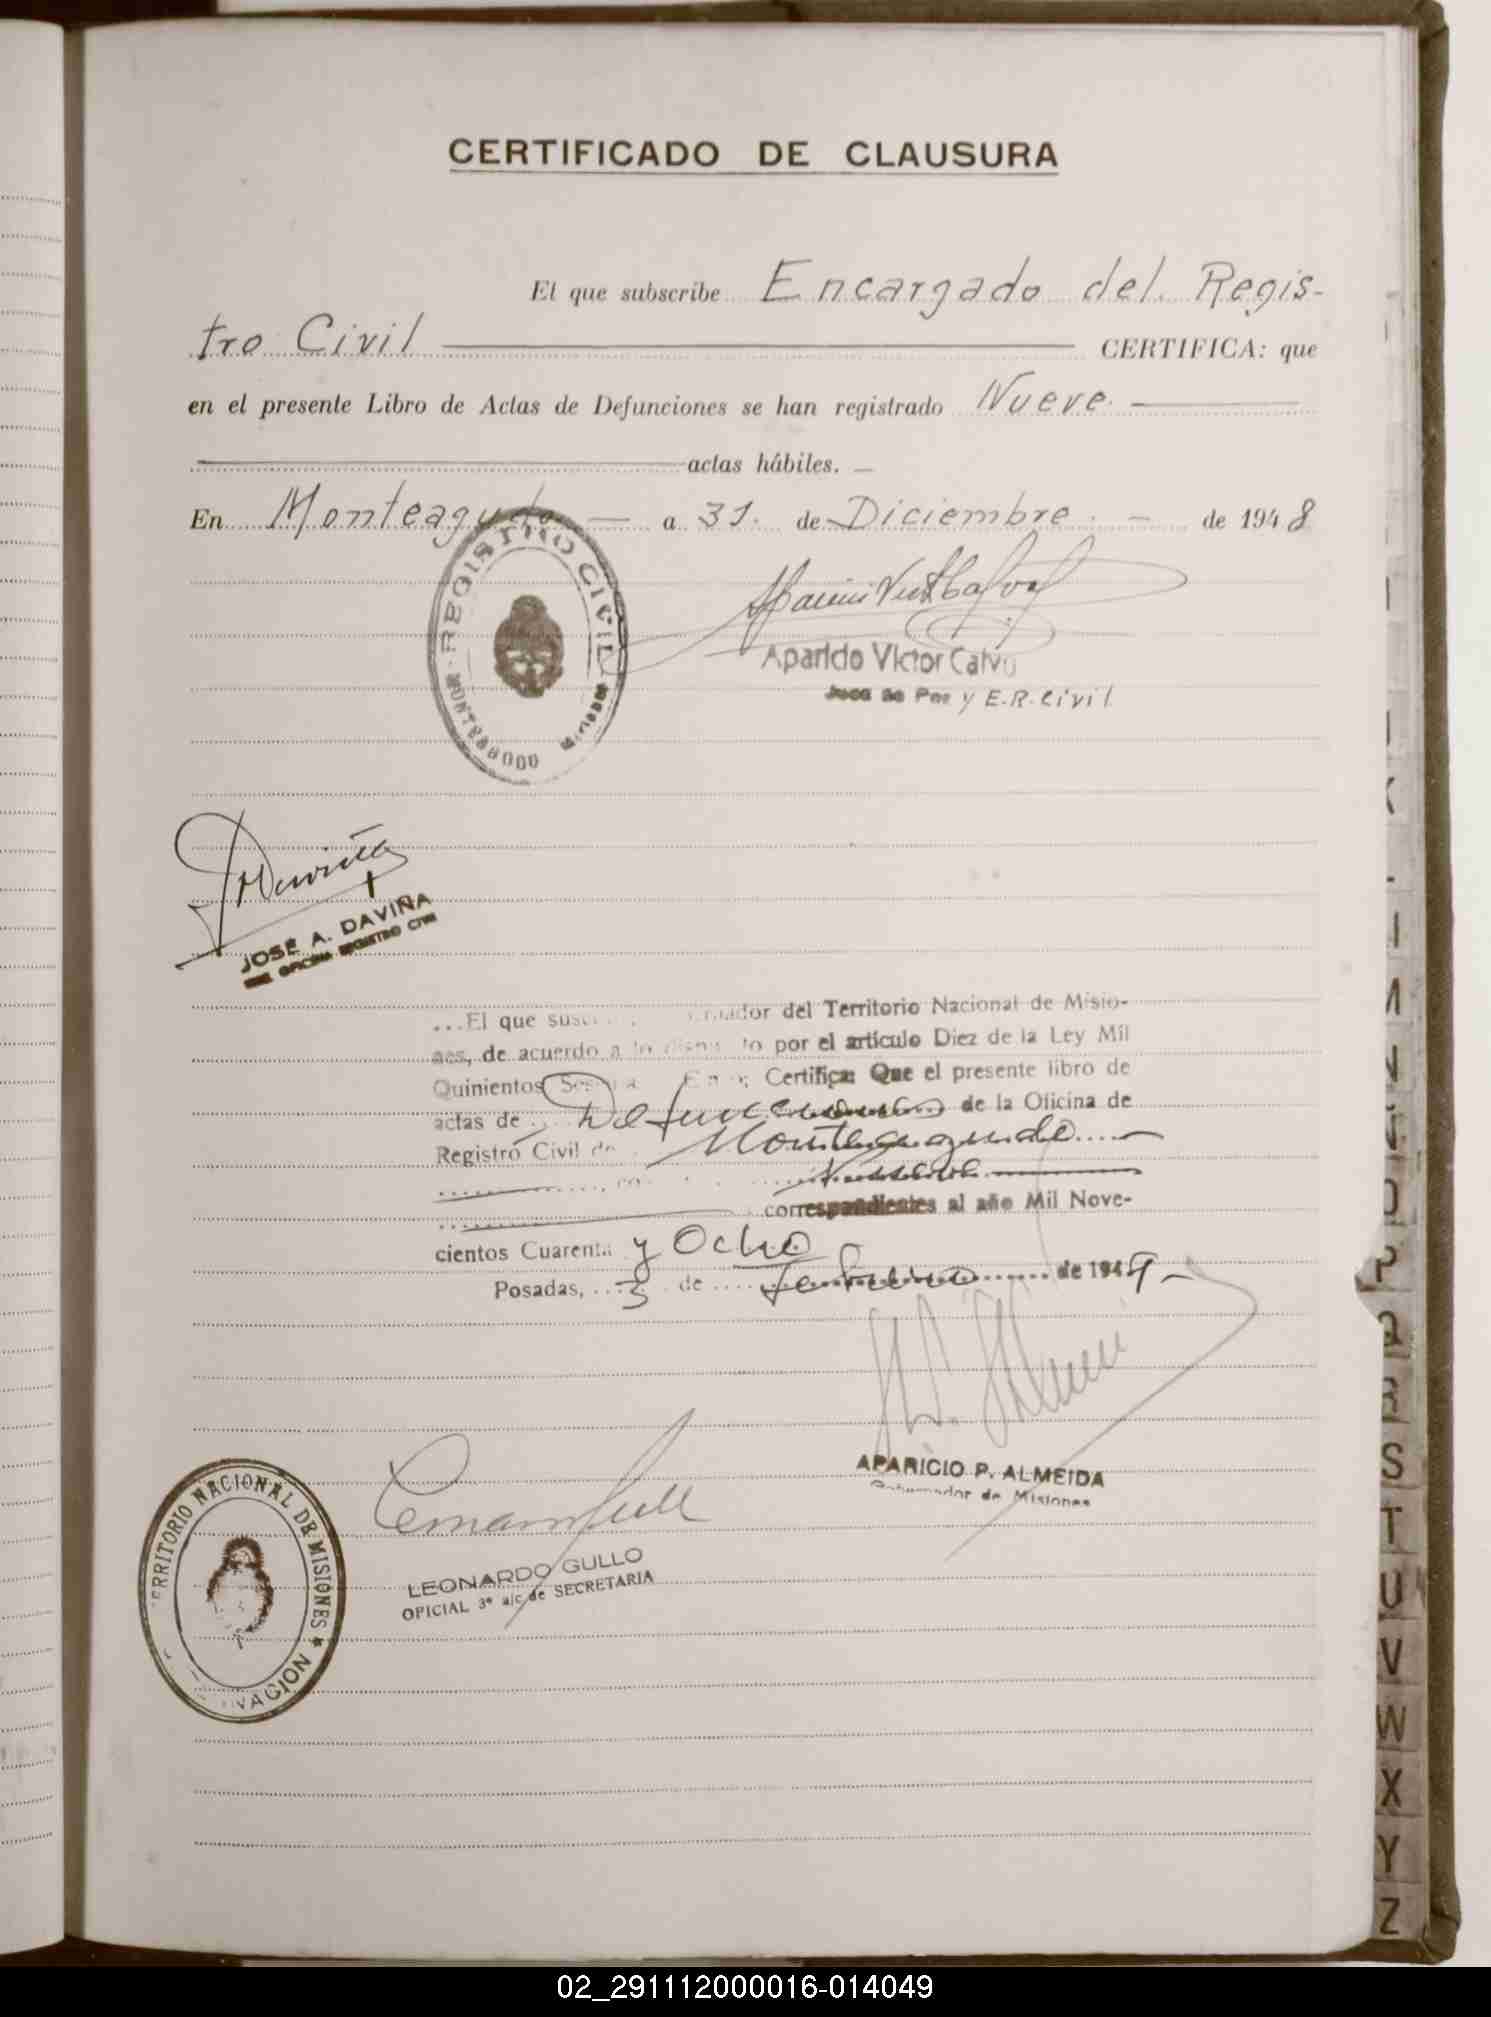 CERTIFICADO DE CLAUSURA
El que subscribe Encargado del Regis-
tro Civil CERTIFICA: que
en el presente Libro de Actas de Defunciones se han registrado Nueve
actas hábiles.
En Monteagudo a 31 de Diciembre de 1948
REGISTRO CIVIL
MONTEAGUDO MISIONES
Aparicio Victor Calvo
Juez de Paz y E.R. Civil
JOSE A. DAVIÑA
OFICINA REGISTRO CIVIL
...El que sus nador del Territorio Nacional de Misio-
nes, de acuerdo a lo dispu to por el artículo Diez de la Ley Mil
Quinientos Certifica: Que el presente libro de
actas de Defunciones de la Oficina de
Registro Civil de Monteagudo
correspondientes al año Mil Nove-
cientos Cuarenta y Ocho
Posadas, 3 de Febrero de 1949
APARICIO P. ALMEIDA
Gobernador de Misiones
LEONARDO GULLO
OFICIAL 3º a/c de SECRETARIA
TERRITORIO NACIONAL DE MISIONES
NACION
K
L
M
N
Ñ
O
P
Q
R
S
T
U
V
W
X
Y
Z
02_291112000016-014049